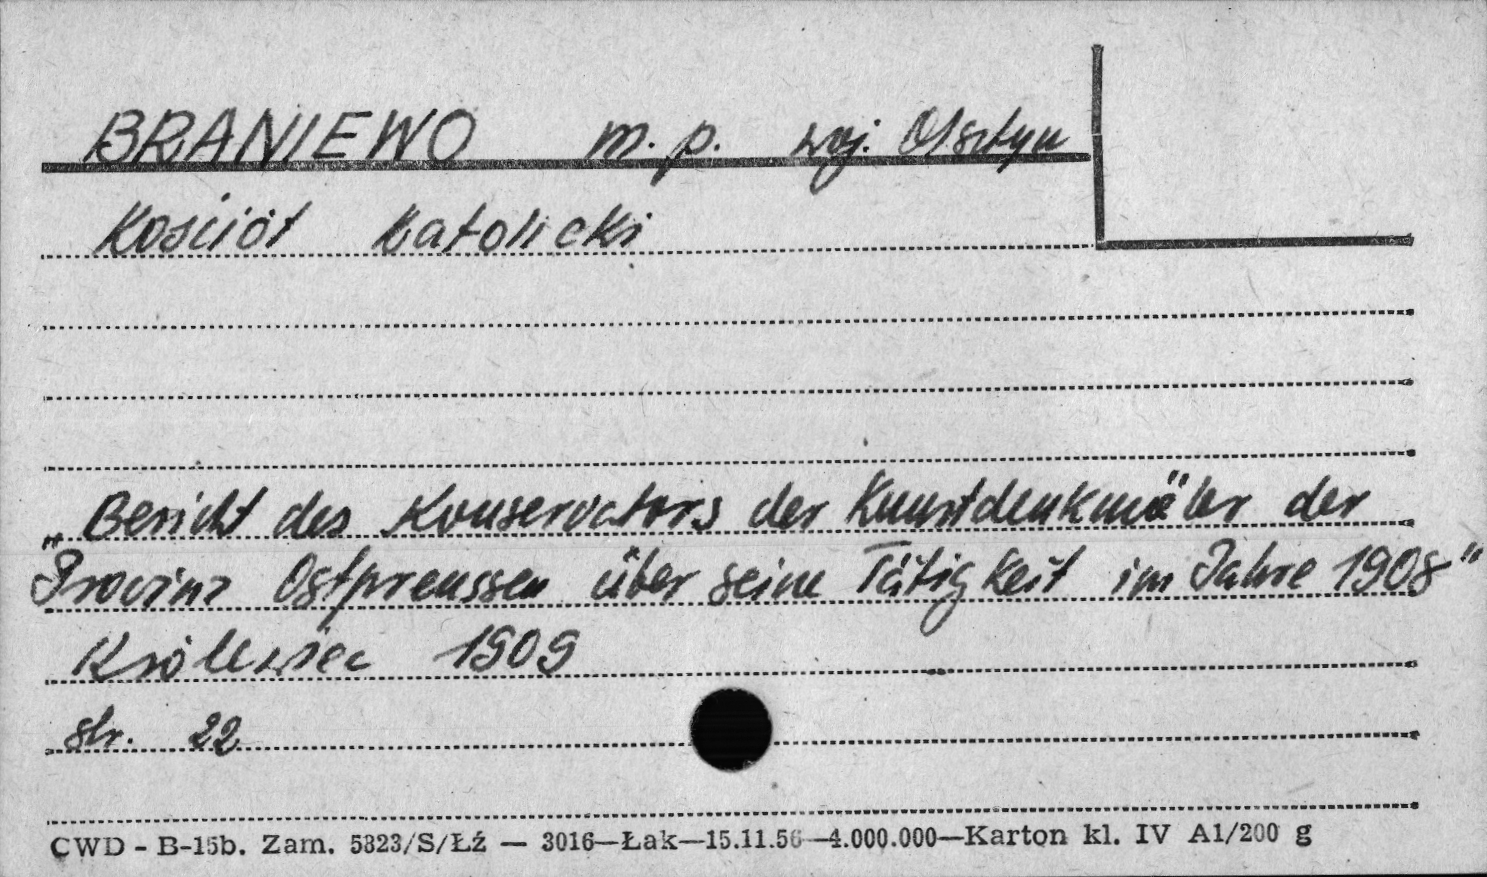 BRANIEWO m. p. woj. Olsztyn
Kościół Katolicki
„Bericht des Konservators der Kunstdenkmäler der
Provinz Ostpreussen über seine Tätigkeit im Jahre 1908"
Królewiec 1909
str. 22
CWD - B-15b. Zam. 5823/S/Łź — 3016—Łak—15.11.56—4.000.000—Karton kl. IV A1/200 g